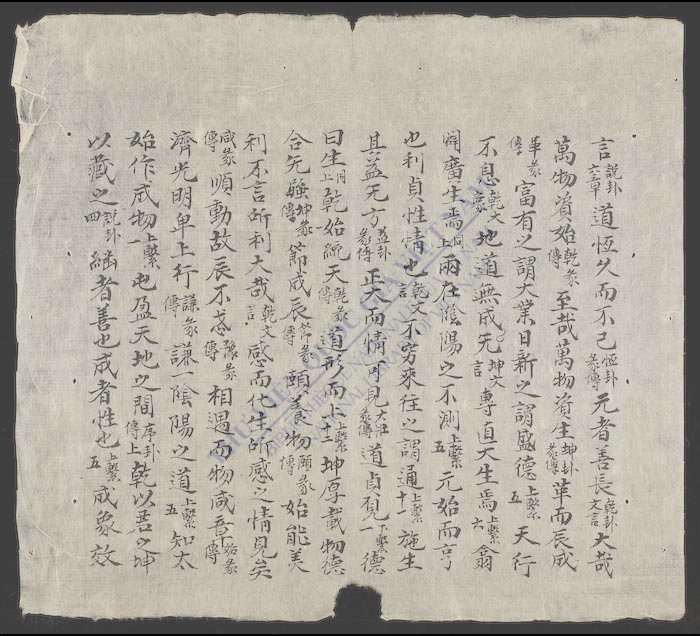 言說卦道恆久而不已恆卦彖傳元者善長乾卦文言大哉
萬物資始乾彖傳至哉萬物資生坤卦彖傳革而辰成
革彖傳富有之謂大業日新之謂盛德上繫五天行
不息乾文地道無成无坤文言專直大生焉上繫六翕
闢廣生焉同上兩在陰陽之不測上繫五元始而亨
也利貞性情也乾文言不穷來往之謂通上繫十一施生
其益无方益卦彖傳正大而情可見大壯彖傳道貞覌下繫一德
曰生同上乾始統天乾彖傳首形而上上繫十二坤厚載物德
合无疆坤彖傳節成辰節彖傳頤養物頤彖傳始能美
利不言所利大哉乾文言感而化生所感之情見矣
咸彖傳順動故辰不忒豫彖傳相遇而物咸章姤彖傳
濟光明卑上行謙彖傳謙一陰陽之道上繫五知太
始作成物上繫一屯盈天地之間序卦傳上乾以君之坤
以藏之說卦四継者善也成者性也上繫五成象效